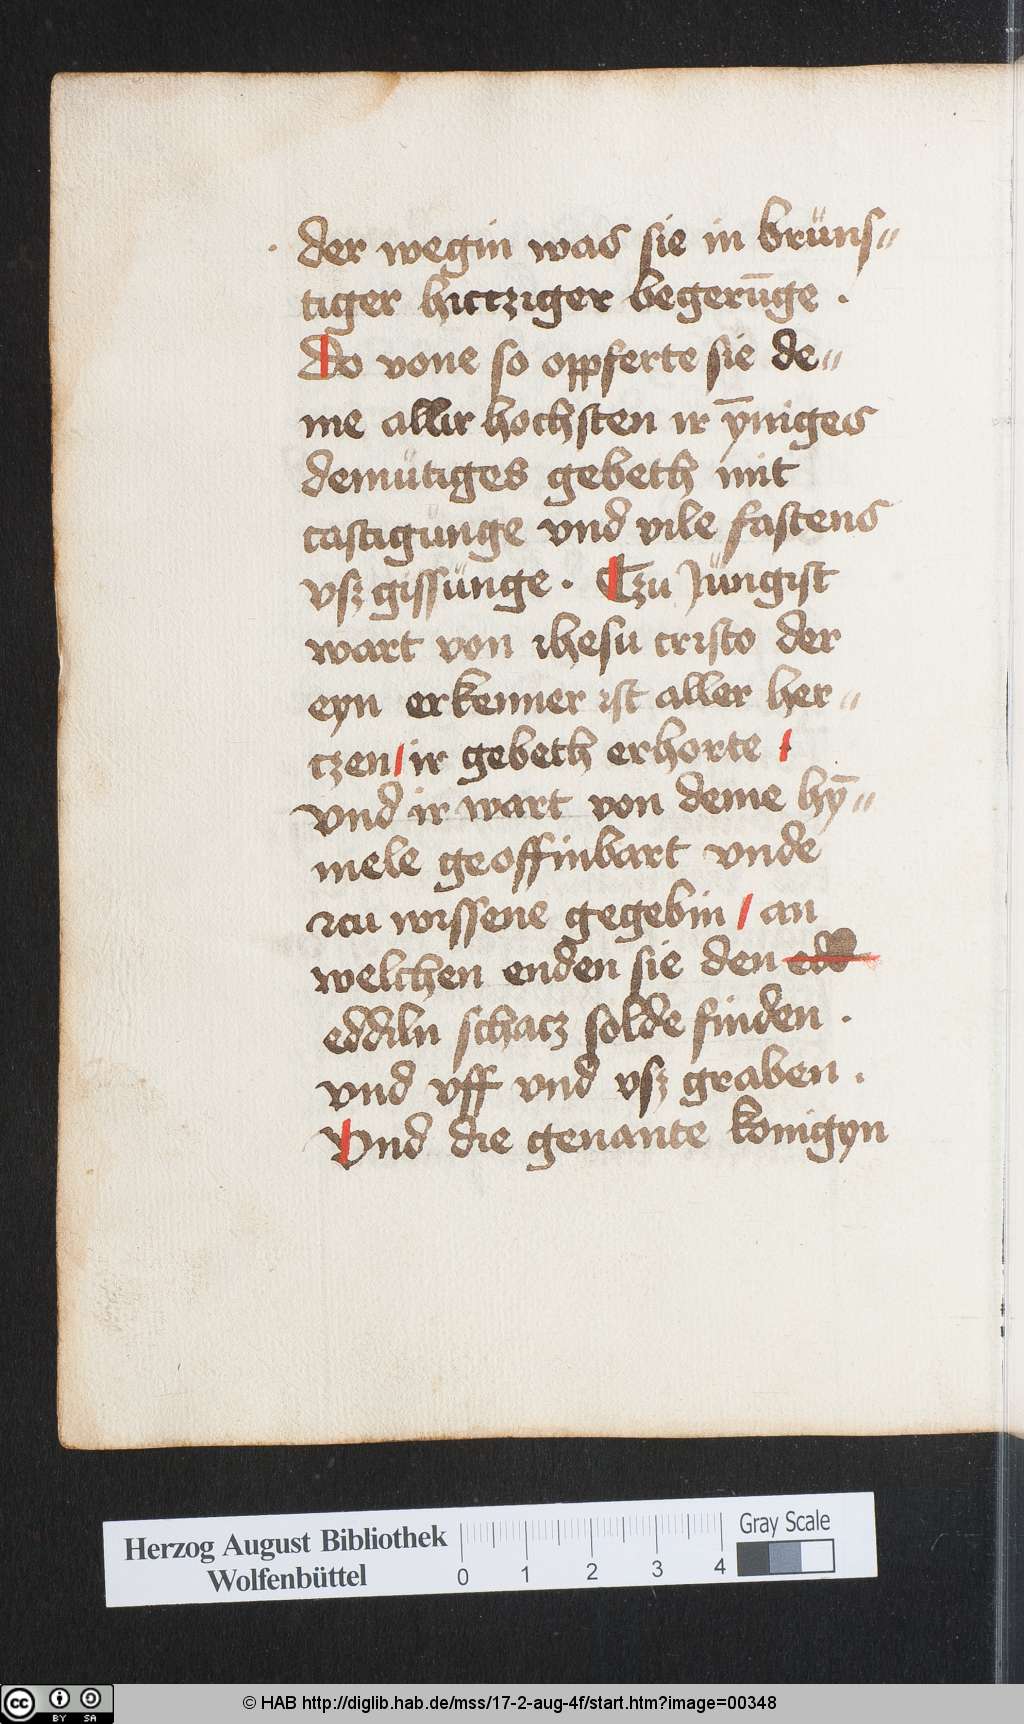 der wegin was sie in brüns⸗
tiger hictziger begerūge .
Do vone so opferte sie de⸗
me allir hochsten ir ȳniges
demütiges gebeth mit
castigünge vnd vile fastens
vsz gissünge . Czu Jüngist
wart von ihesu cristo der
eyn erkenner ist aller her⸗
tzen / ir gebeth erhorte /
vnd ir wart von deme hȳ⸗
mele geoffinbart vnde
zcu wissene gegebin / an
welchen enden sie den edd
eddiln schacz solde finden .
vnd vff vnd vsz graben .
Vnd die genante konigyn
Herzog August Bibliothek
Wolfenbüttel
0 1 2 3 4
Gray Scale
cc BY SA
© HAB http://diglib.hab.de/mss/17-2-aug-4f/start.htm?image=00348